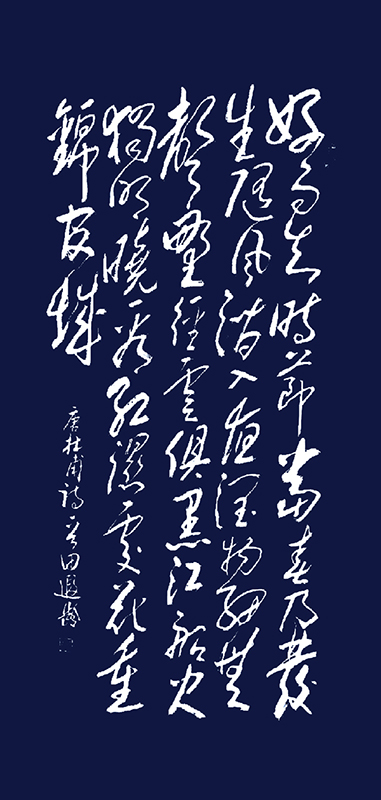 好雨知時節當春乃發
生隨風潛入夜潤物細無
聲野徑雲俱黑江船火
獨明曉看紅濕處花重
錦官城
唐杜甫詩田遐齡